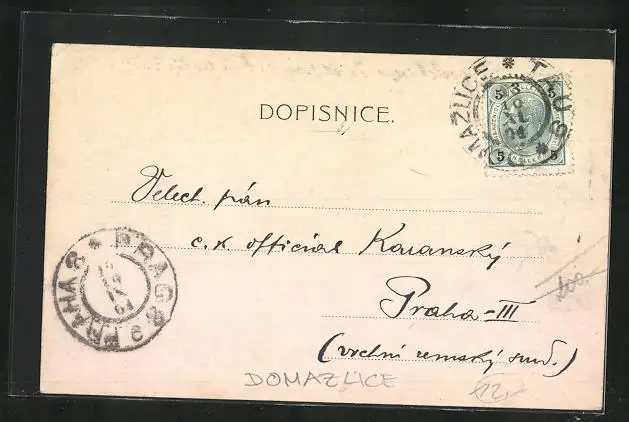 DOPISNICE.
DOMAZLICE * TAUS *
5 5
5 HELLER 5
Velect. pán
c. k. official Kavanský
Praha-III
(vrchní zemský soud.)
PRAHA 2 * PRAG 2
100.
DOMAZLICE
12,